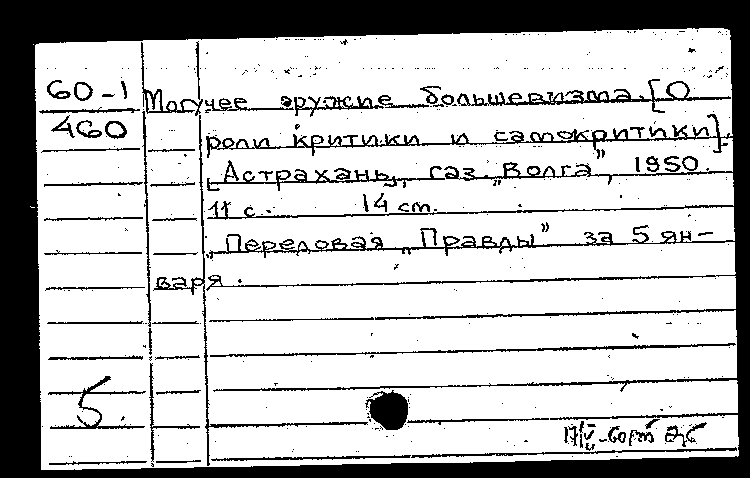 60-1
Могучее оружие большевизма. [О
460
роли критики и самокритики].
[Астрахань], газ. „Волга”, 1950.
11 с. 14 см.
„Передовая „Правды” за 5 ян-
варя.
5.
17/V-60